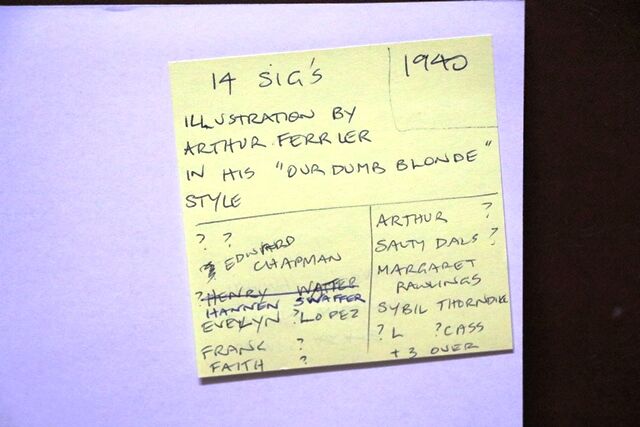 14 SIG'S
1940
ILLUSTRATION BY
ARTHUR FERRIER
IN HIS "OUR DUMB BLONDE"
STYLE
? ?
? EDWARD
CHAPMAN
? HENRY WATTER
HANNEN SWAFFER
EVELYN ? LOPEZ
FRANK ?
FAITH ?
ARTHUR ?
SALTY DALS ?
MARGARET
RAWLINGS
SYBIL THORNDIKE
? L ? CASS
+ 3 OVER